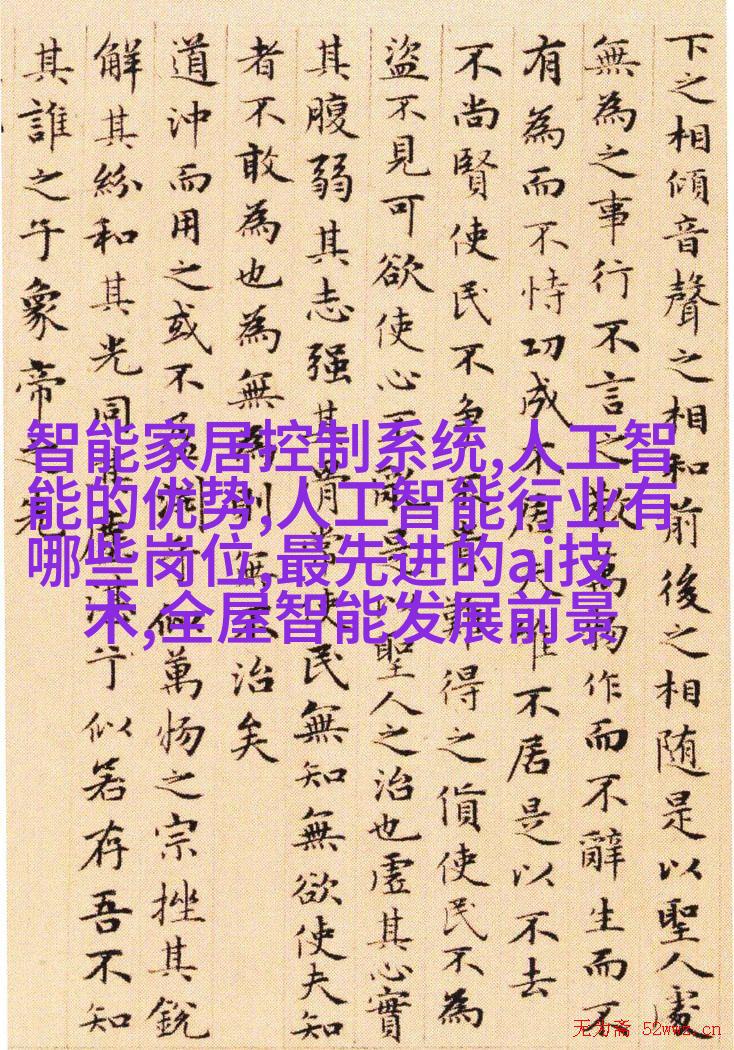 下之相傾音聲之相和前後之相随是以聖人處
無為之事行不言之教萬物作而不辭生而不
有為而不恃功成不居夫唯不居是以不去
不尚賢使民不争不貴難得之貨使民不為
盜不見可欲使心不亂是以聖人之治也虛其心實
其腹弱其志强其骨常使民無知無欲使夫知
者不敢為也為無為則無不治矣
道沖而用之或不盈渊兮似萬物之宗挫其銳
解其紛和其光同其塵湛兮似若存吾不知
其誰之子象帝之先
智能家居控制系统,人工智
能的优势,人工智能行业有
哪些岗位,最先进的ai技
术,全屋智能发展前景
无为斋 52wwz.cn